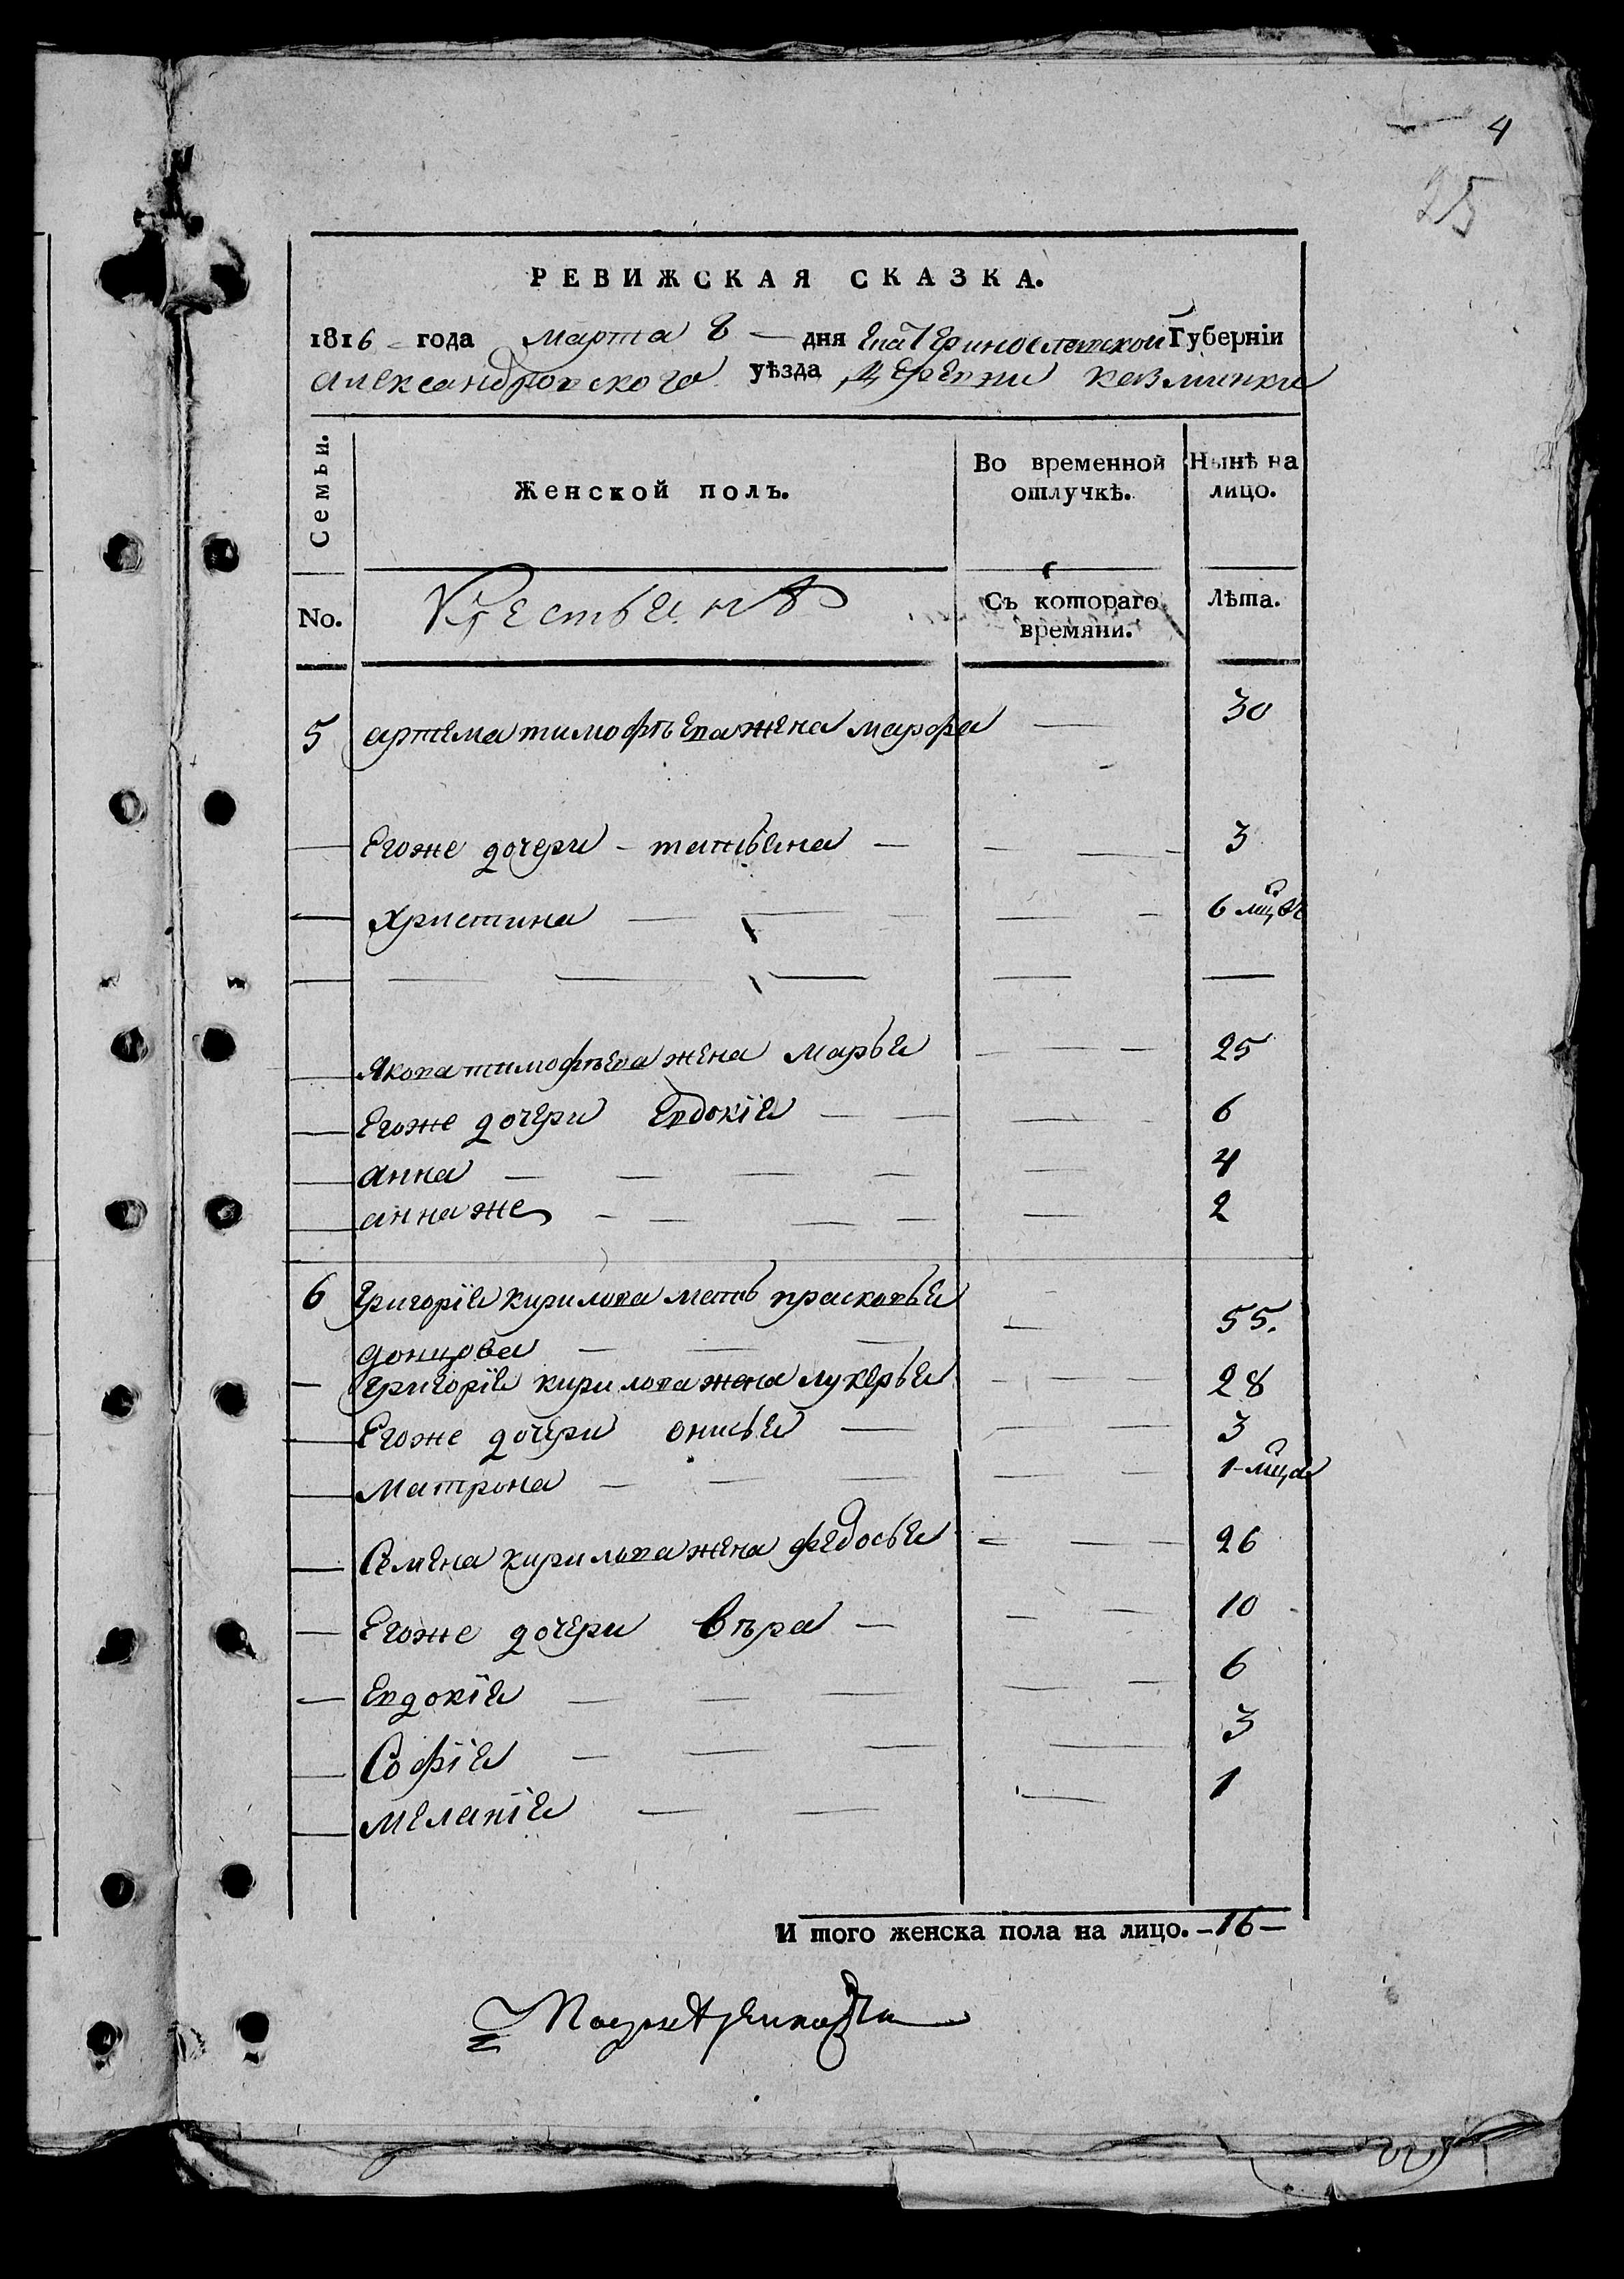 4
25
РЕВИЖСКАЯ СКАЗКА.
1816 года марта 8 дня Екатеринославской Губерніи
александровского уѣзда деревни казминки
Семьи. Женской полъ. Во временной отлучкѣ. Нынѣ на лицо.
No. Крестьянъ Съ котораго времяни. Лѣта.
5 артема тимофѣева жена марфа — 30
Егоже дочери - татьяна — 3
Христина — 6 мцовъ
Якова тимофѣева жена марья — 25
Егоже дочери Евдокія — 6
анна — 4
анна же — 2
6 григорія кирилова мать прасковья
донцова — 55.
григорія кирилова жена лукерья — 28
Егоже дочери онисья — 3
матрона — 1 мца
Семена кирилова жена федосья — 26
Егоже дочери вѣра — 10
Евдокія — 6
Софія — 3
меланія — 1
И того женска пола на лицо. —16—